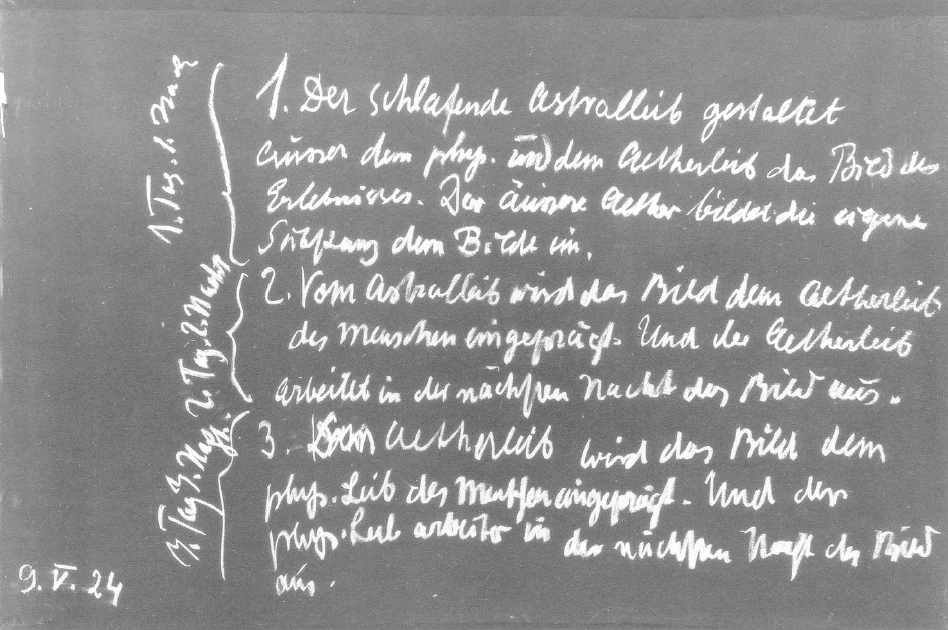 1. Der schlafende Astralleib gestaltet
ausser dem phys. und dem Aetherleib das Bild des
Erlebnisses. Der äussere Aether bildet die eigene
dem Bilde ein.
2. Vom Astralleib wird das Bild dem Aetherleib
des Menschen eingeprägt. Und der Aetherleib
arbeitet in der nächsten Nacht das Bild aus.
3. Vom Aetherleib wird das Bild dem
phys. Leib des Menschen eingeprägt. Und der
phys. Leib arbeitet in der nächsten Nacht das Bild
aus.
1. Tag. 1. Nacht
2. Tag. 2. Nacht
3. Tag 3. Nacht.
9. V. 24